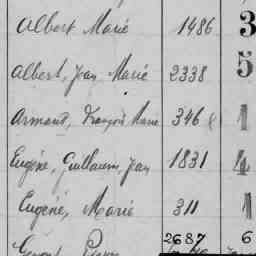 Albert Marie 1486 3
Albert, Jean Marie 2338 5
Armand, François Marie 346 1
Eugène, Guillaume, Jean 1831 4
Eugène, Marie 311 1
2687 6